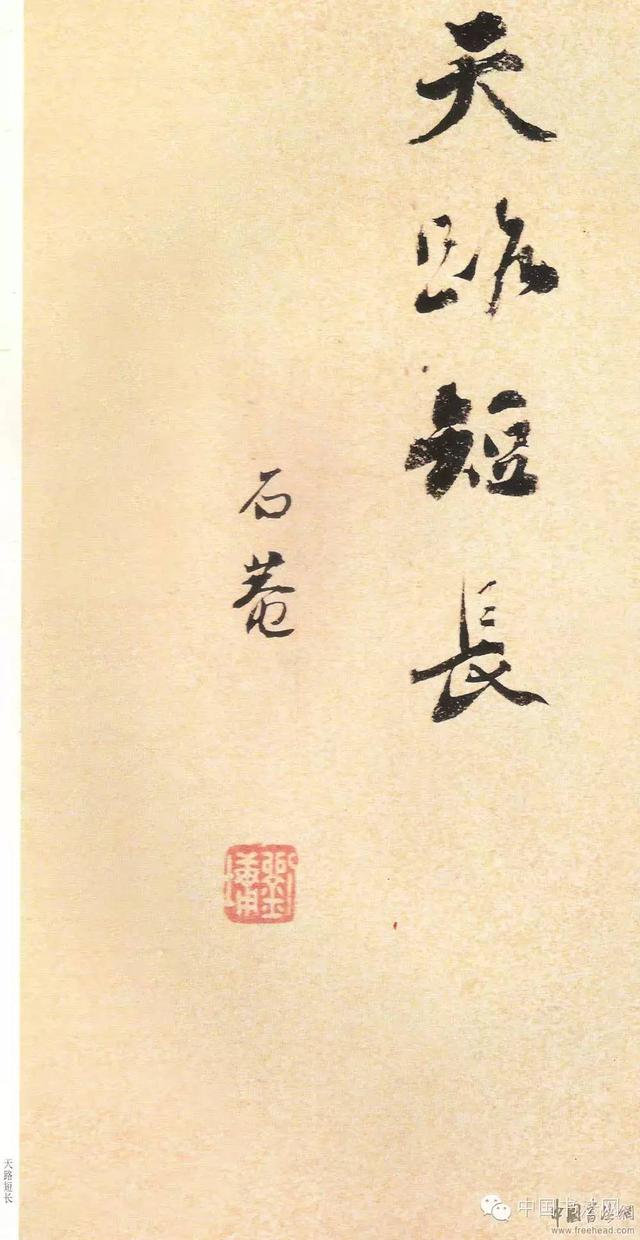 天路短長
石菴
劉墉
天路短长
中国书法网
中國書法網
www.freehead.com